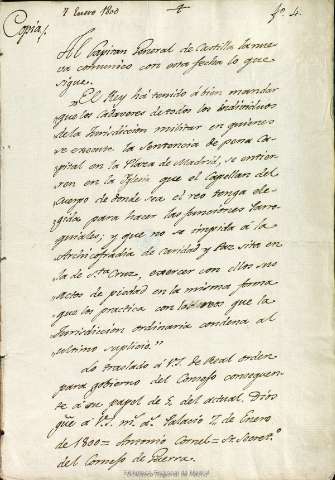 7 Enero 1800
fº. 4.
Copia/
Al Capitan General de Castilla la nue-
va comunico con esta fecha lo que
sigue.
"El Rey há tenido á bien mandar
que los Cadaveres de todos los Individuos
de la Jurisdiccion militar en quienes
se execute la Sentencia de pena ca-
pital en la Plaza de Madrid, se entier-
ren en la Iglesia que el Capellan del
Cuerpo de donde sea el reo tenga ele-
gida para hacer las funciones Parro-
quiales; y que no se impida á la
Archicofradia de caridad y Paz sita en
la de Sta. Cruz, exercer con ellos sus
actos de piedad en la misma forma
que los practica con los reos que la
Jurisdiccion ordinaria condena al
ultimo suplicio."
Lo traslado á V.S. de Real orden
para gobierno del Consejo conseguen-
te á su papel de 2 del actual. Dios
gue. á V.S. ms. as. Palacio 7, de Enero
de 1800 = Antonio Cornel = Sr. Secret.º
del Consejo de Guerra.
Biblioteca Regional de Madrid